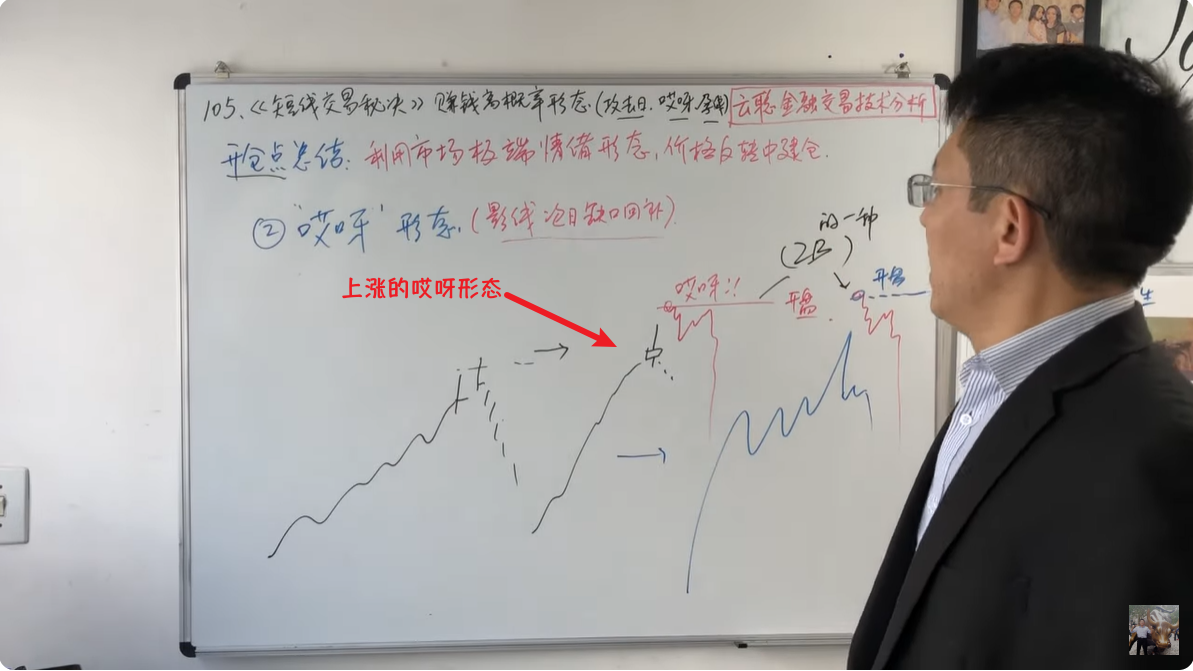 105、《短线交易秘决》赚钱高概率形态(攻击日、哎呀、孕线) 云聪金融交易技术分析
开仓点总结: 利用市场极端情绪形态,价格反转中建仓.
② "哎呀" 形态. (影线次日缺口回补)
的一种
(2B)
上涨的哎呀形态
哎呀!!
开盘
开盘
生